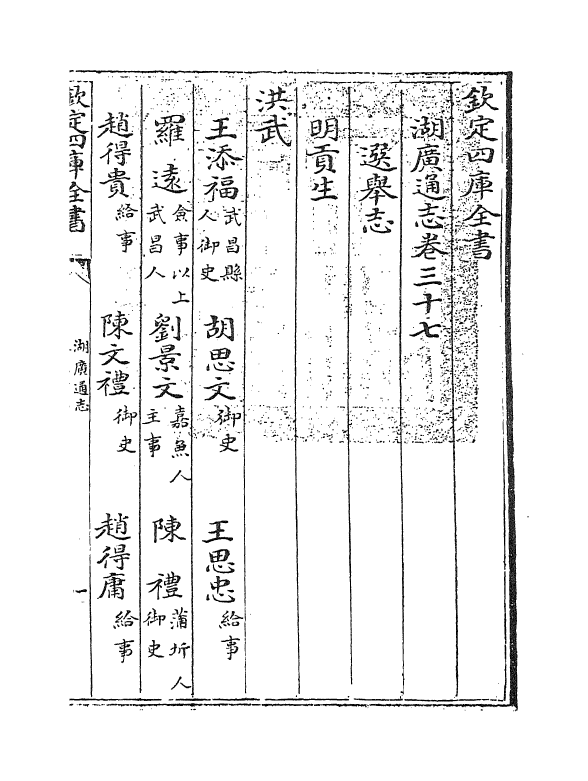 欽定四庫全書
湖廣通志卷三十七
選舉志
明貢生
洪武
王添福武昌縣人御史 胡思文御史 王思忠給事
羅遠僉事以上武昌人 劉景文嘉魚人主事 陳禮蒲圻人御史
趙得貴給事 陳文禮御史 趙得庸給事
欽定四庫全書 湖廣通志 一